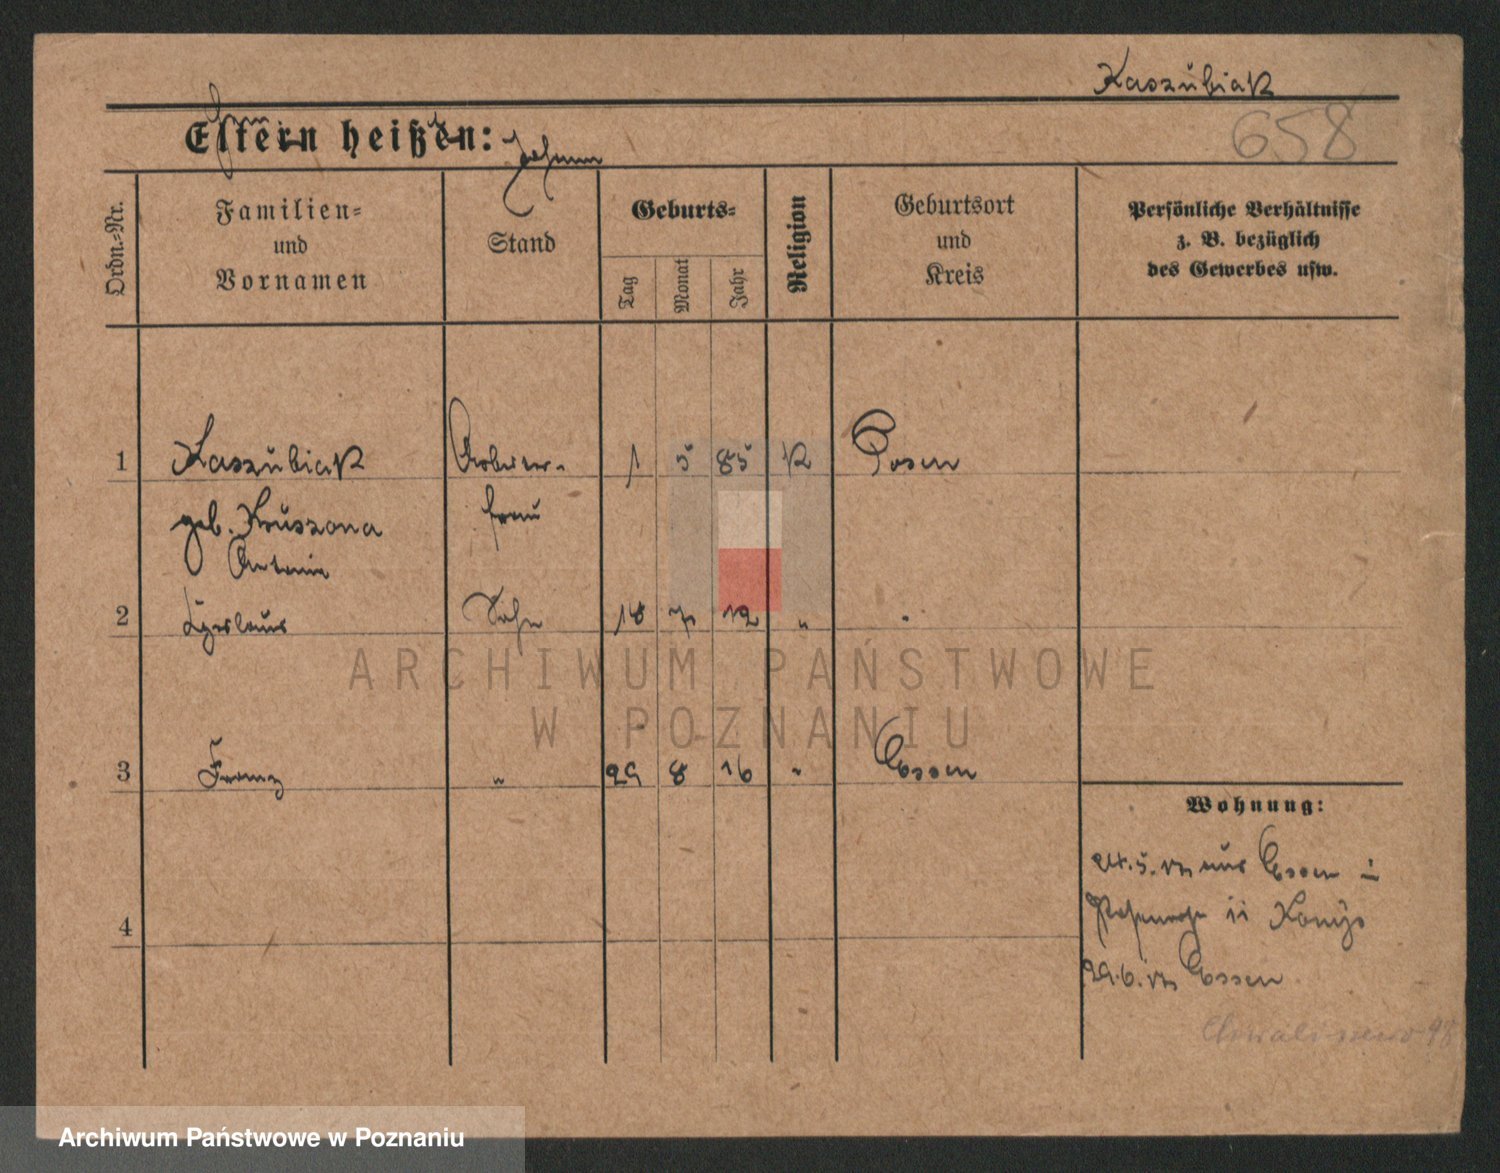 Kaszubiak
658
Eltern heißen:
Johann
Ordn.-Nr.
Familien-
und
Vornamen
Stand
Geburts-
Tag
Monat
Jahr
Religion
Geburtsort
und
Kreis
Persönliche Verhältnisse
z. B. bezüglich
des Gewerbes usw.
1 Kaszubiak Arbeiter- 1 5 85 K Posen
geb. Kruszona frau
Antonie
2 Sohn 18 7 12 "
ARCHIWUM PAŃSTWOWE
W POZNANIU
3 Franz " 29 8 16 " Essen
Wohnung:
24.5.17 aus Essen
4
29.6.17 Essen
Archiwum Państwowe w Poznaniu